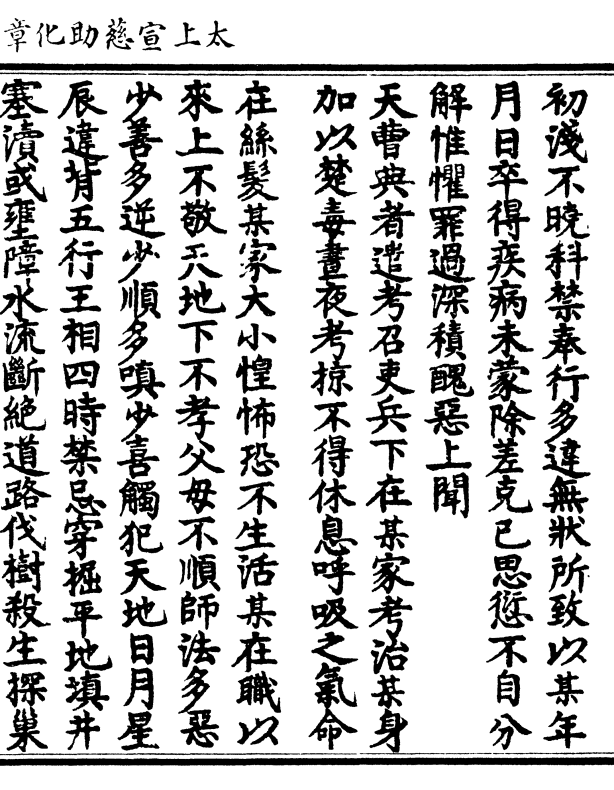 太上宣慈助化章
初淺不曉科禁奉行多違無狀所致以某年
月日卒得疾病未蒙除差克已思愆不自分
解惟懼罪過深積醜惡上聞
天曹典者遣考召吏兵下在某家考治某身
加以楚毒晝夜考掠不得休息呼吸之氣命
在絲髮某家大小惶怖恐不生活某在職以
來上不敬天地下不孝父母不順師法多惡
少善多逆少順多嗔少喜觸犯天地日月星
辰違背五行王相四時禁忌穿掘平地填井
塞瀆或壅障水流斷絕道路伐樹殺生探巢